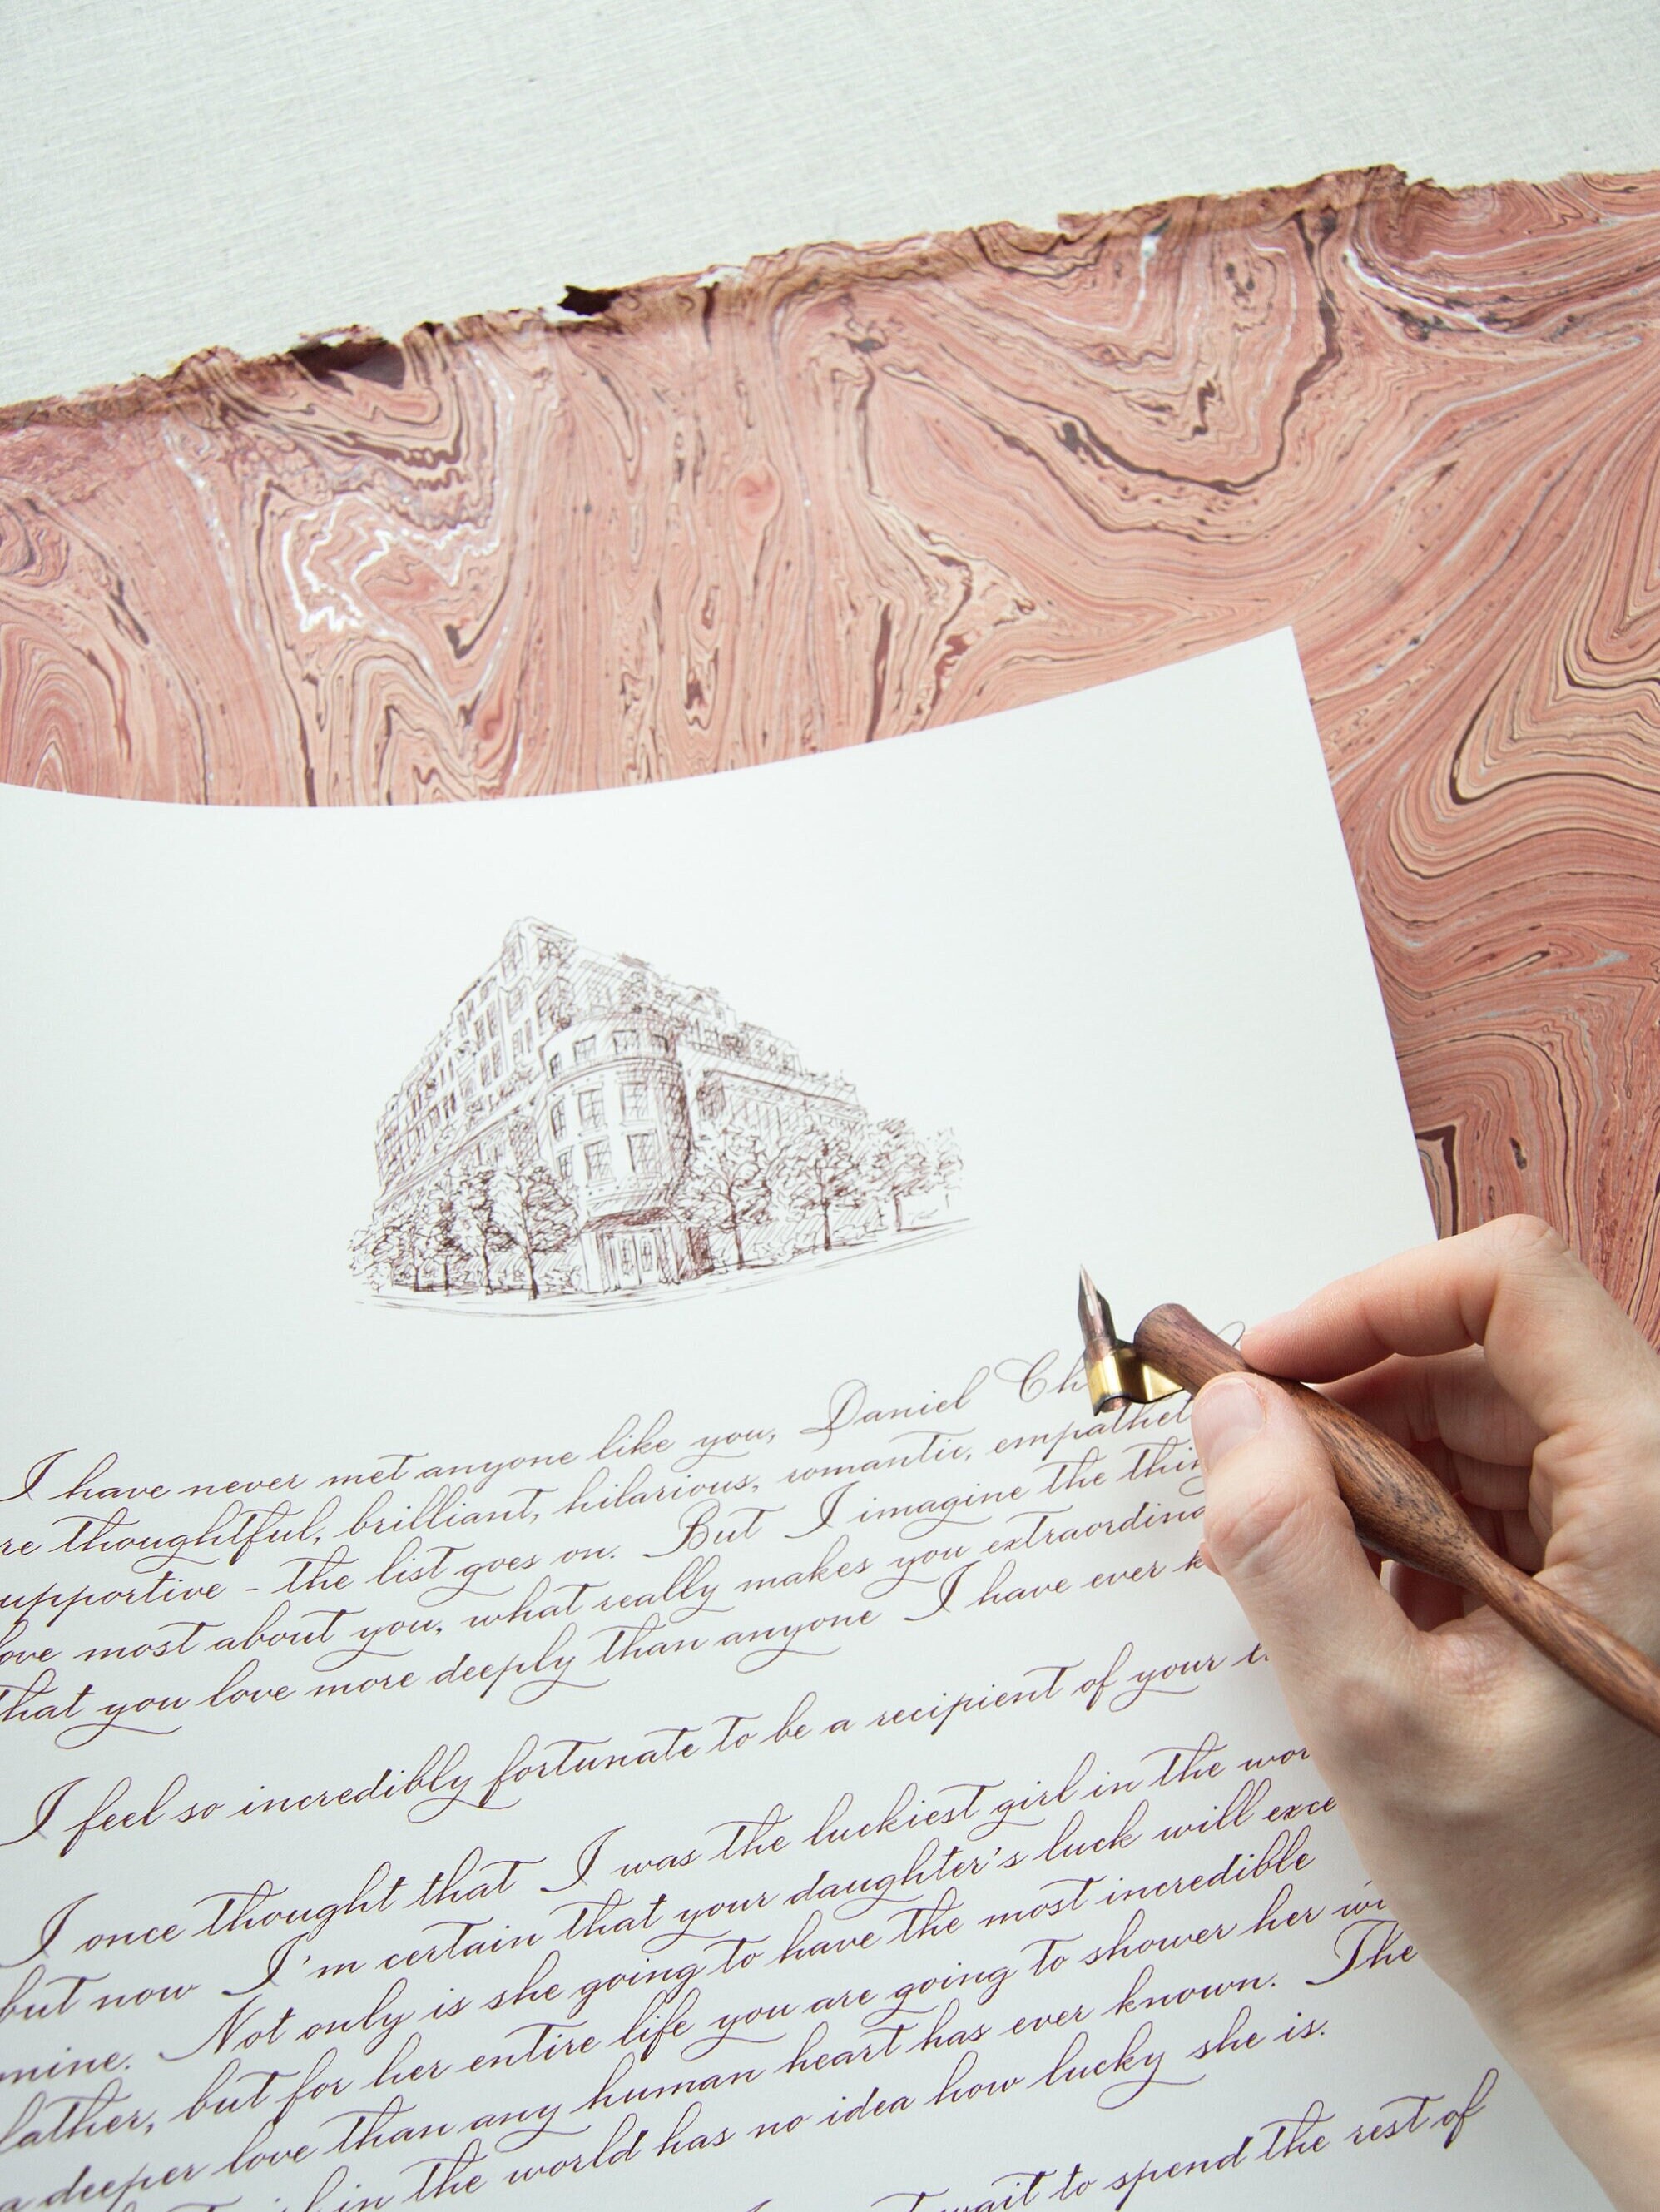 I have never met anyone like you, Daniel
thoughtful, brilliant, hilarious, romantic,
- the list goes on. But I imagine the
most about you, what really makes you
that you love more deeply than anyone I have ever
I feel so incredibly fortunate to be a recipient of your
I once thought that I was the luckiest girl in the
but now I'm certain that your daughter's luck will
mine. Not only is she going to have the most incredible
father, but for her entire life you are going to shower her
a deeper love than any human heart has ever known. The
in the world has no idea how lucky she is.
wait to spend the rest of